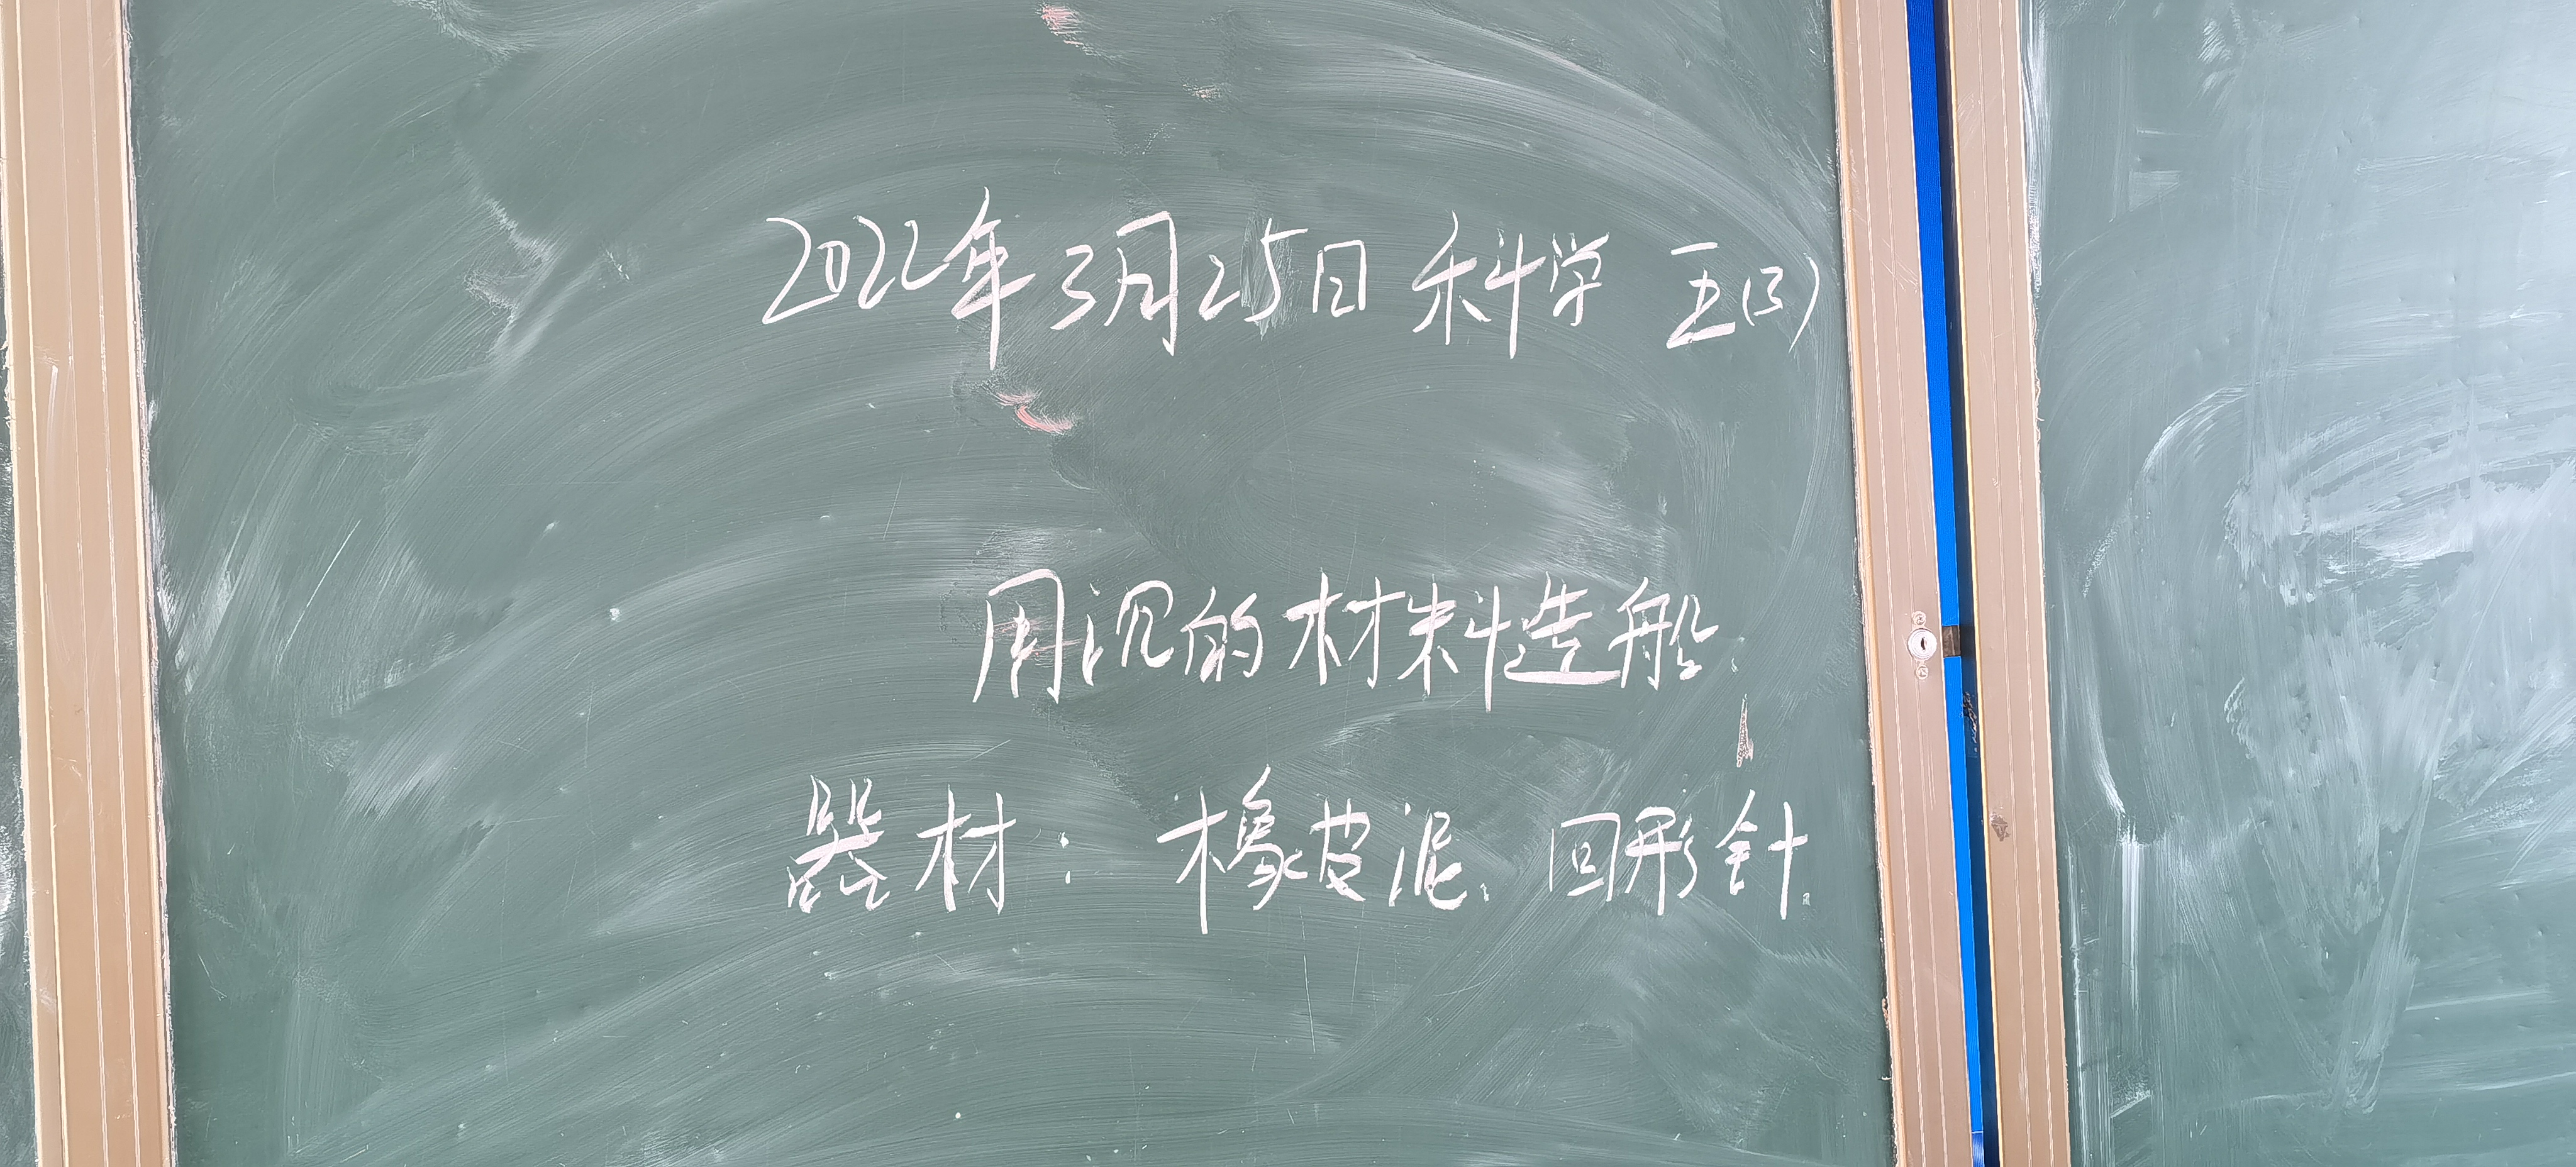 2022年3月25日 科学 五(3)
用沉的材料造船.
器材：橡皮泥. 回形针.